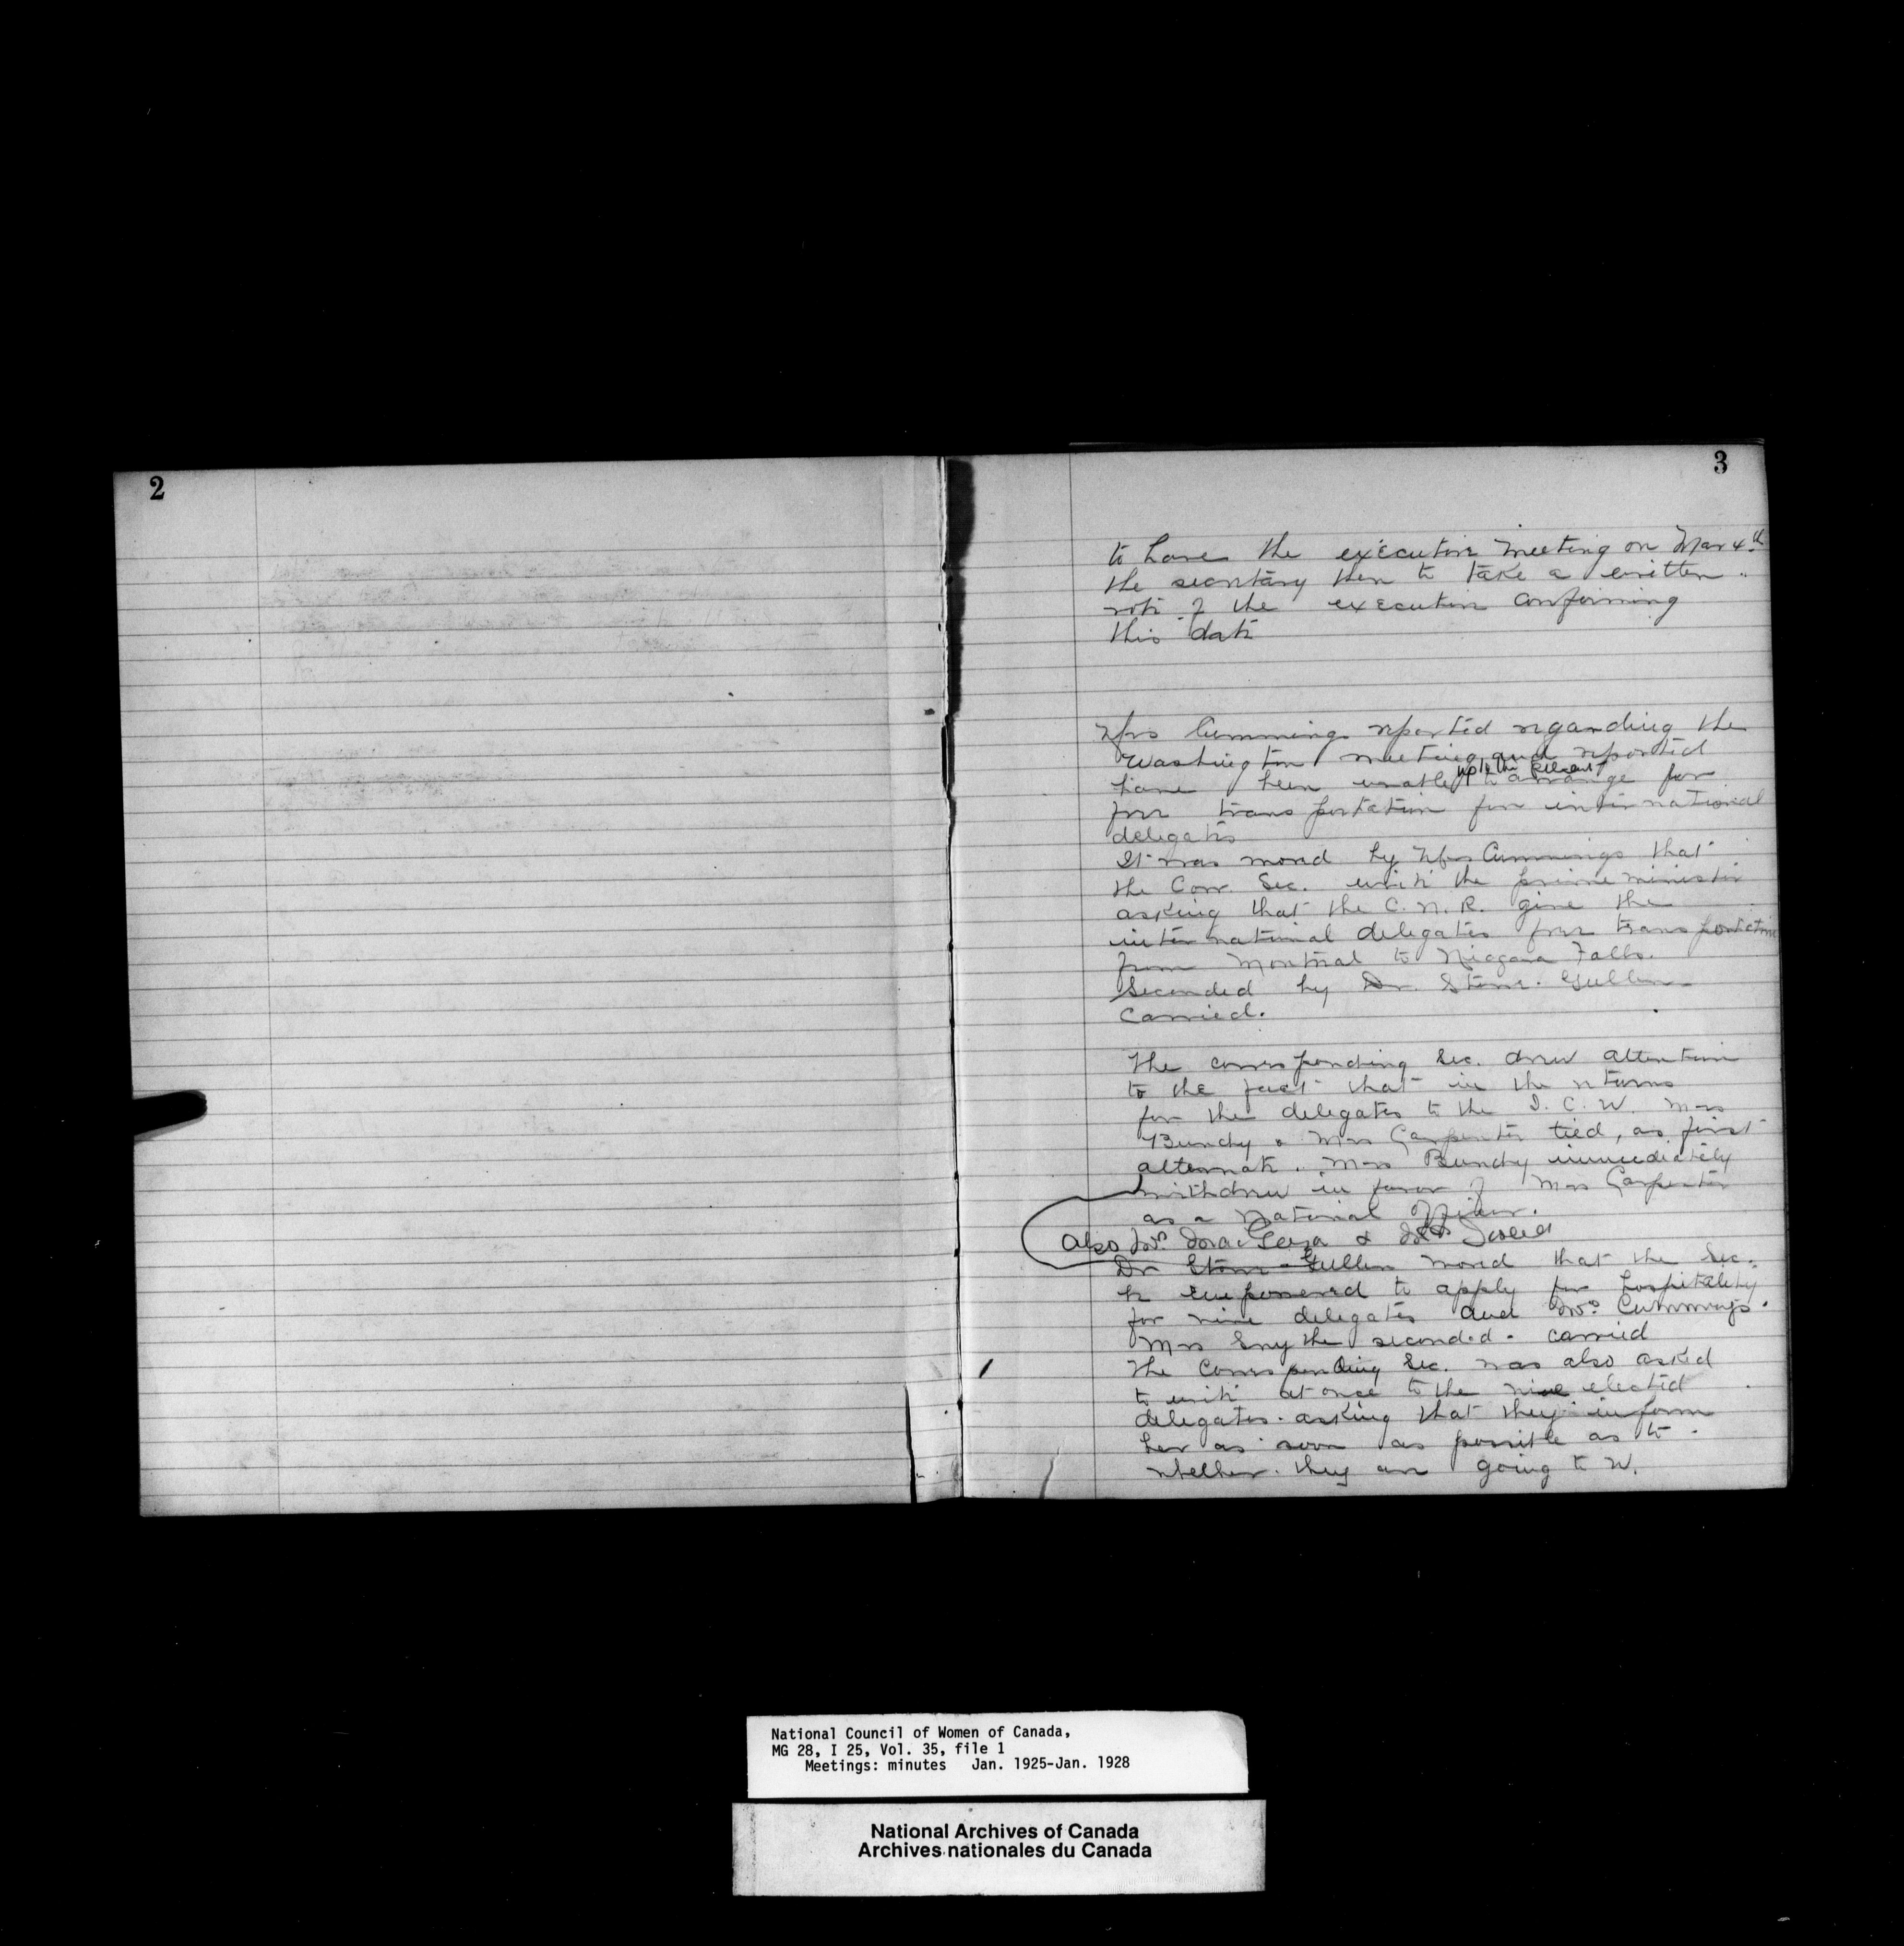 2
3
to have the executive meeting on Mar 4th
the secretary then to take a written
vote of the executive confirming
this date
Mrs Cummings reported regarding the
Washington meeting and reported
have been unable up to the present to arrange for
free transportation for international
delegates
It was moved by Mrs Cummings that
the Corr. Sec. write the prime minister
asking that the C.N.R. give the
international delegates free transportation
from Montreal to Niagara Falls.
Seconded by Dr. Stowe-Gullen
Carried.
The corresponding Sec. drew attention
to the fact that in the returns
for the delegates to the I.C.W. Mrs
Bundy & Mrs Carpenter tied, as first
alternate. Mrs Bundy immediately
withdrew in favor of Mrs Carpenter
as a National Officer.
also Mrs &
Dr Stowe-Gullen moved that the Sec.
be empowered to apply for hospitality
for nine delegates and Mrs Cummings.
Mrs Smythe seconded - carried
The Corresponding Sec. was also asked
to write at once to the nine elected
delegates asking that they inform
her as soon as possible as to
whether they are going to W.
National Council of Women of Canada,
MG 28, I 25, Vol. 35, file 1
Meetings: minutes Jan. 1925-Jan. 1928
National Archives of Canada
Archives nationales du Canada